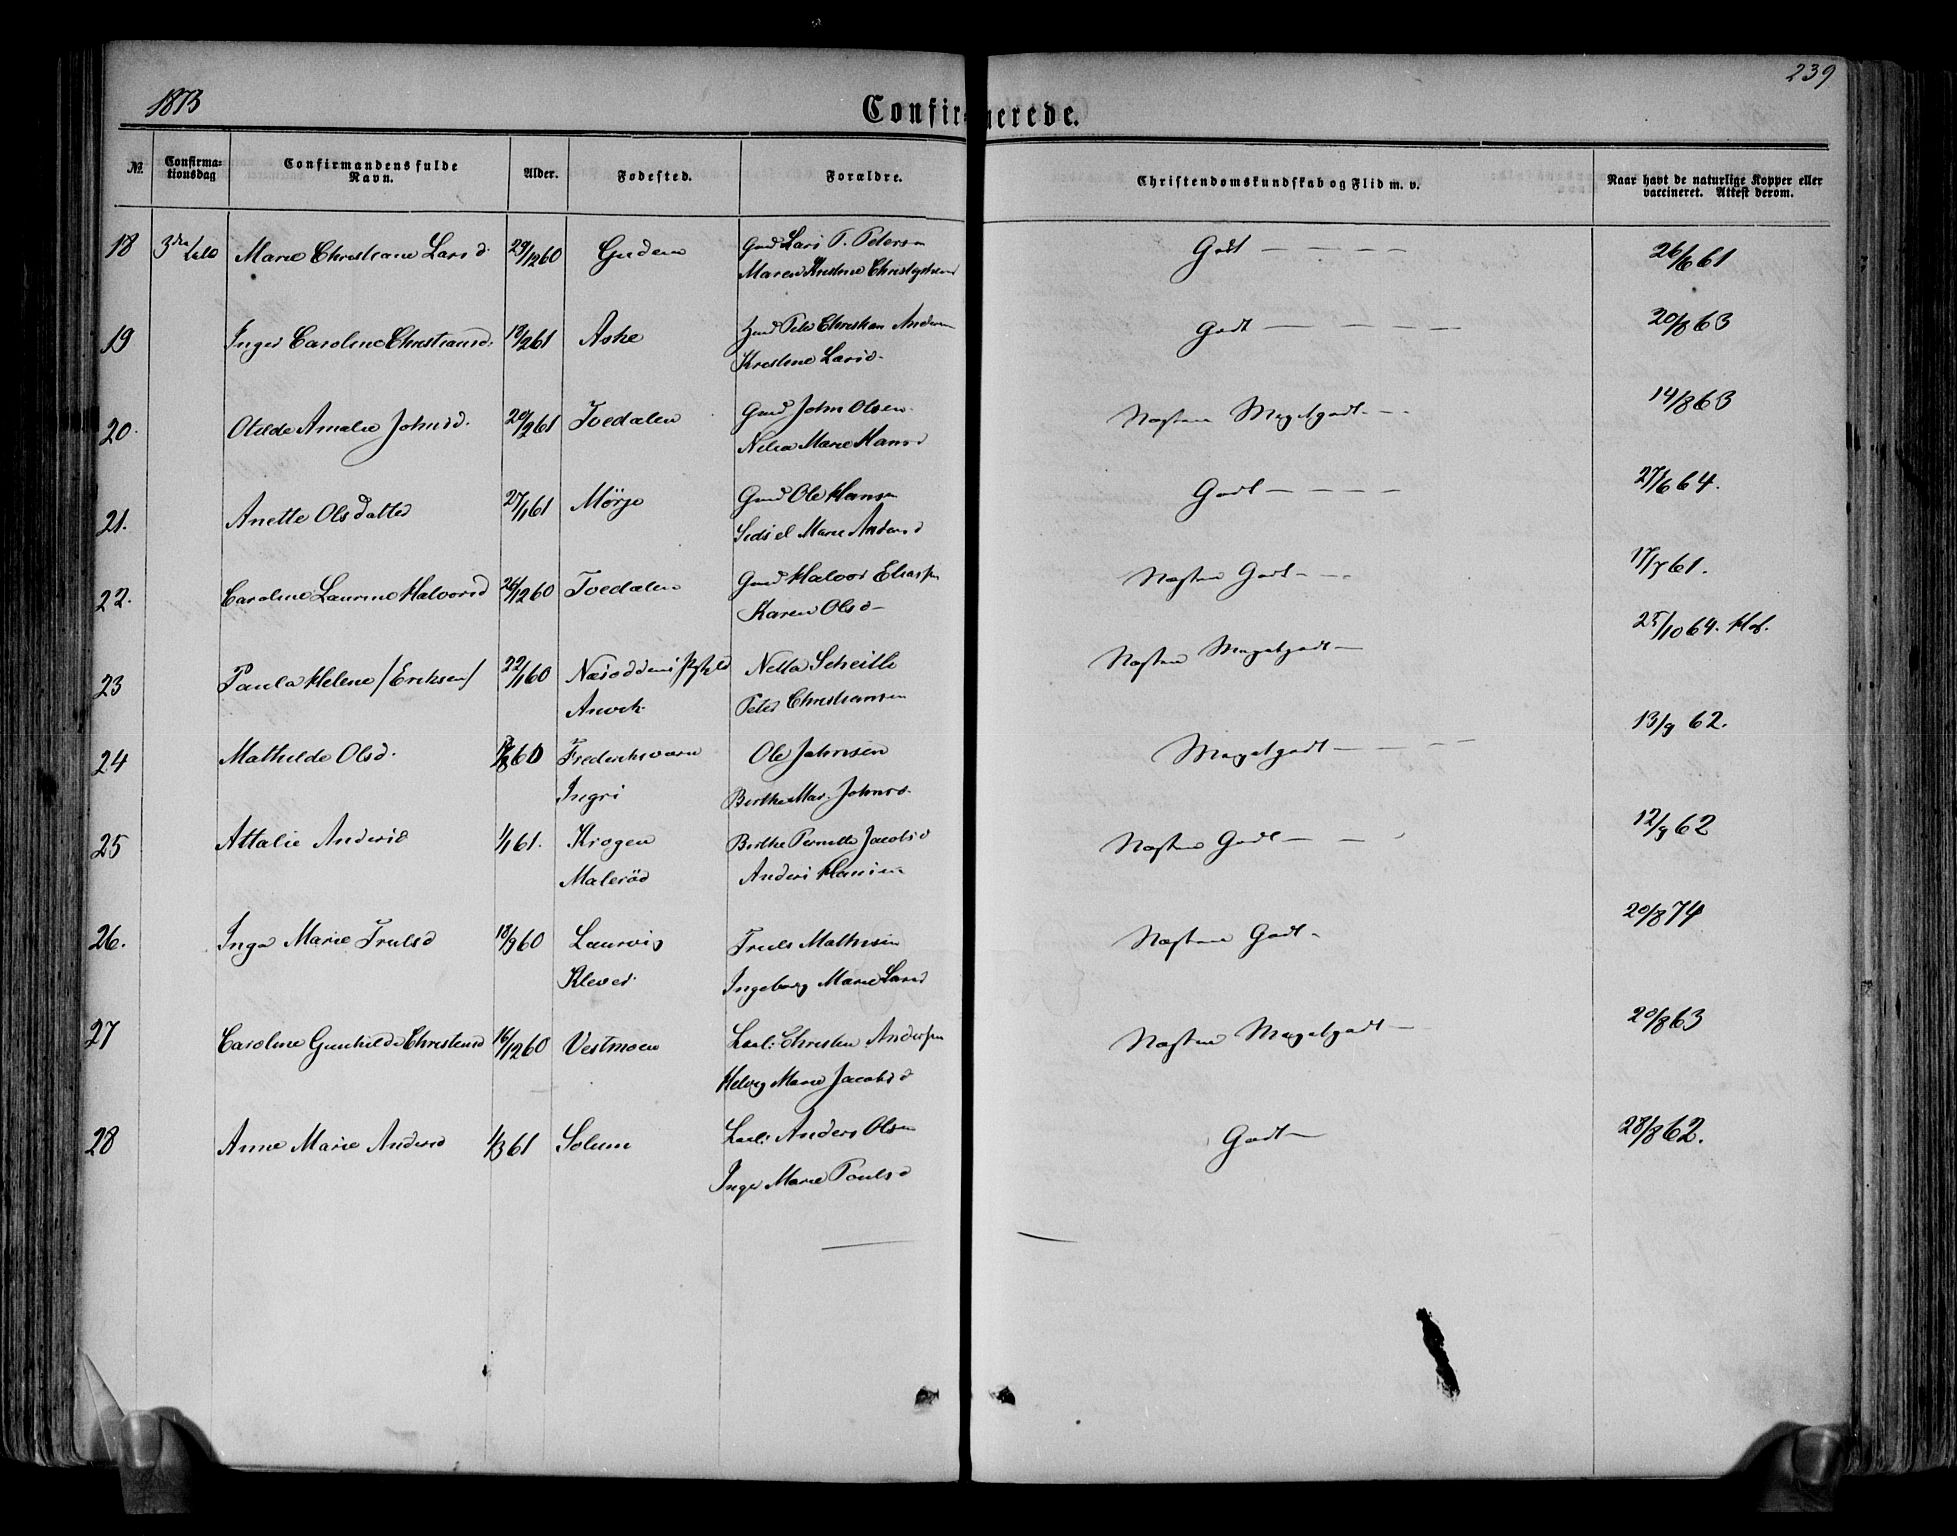 1873
239
Confirmerede.
№ Confirmationsdag Confirmandens fulde Navn. Alder. Fødested. Forældre. Christendomskundskab og Flid m. v. Naar havt de naturlige Kopper eller vaccineret. Attest derom.
18 3die Marie Christiane Larsd 29/12 60 Guden Gmd Lars P. Petersen Godt — — — — 26/6 61
Maren Kirstine
19 Inger Caroline Christiansd. 13/2 61 Aske Gmd Peter Christian Andersen Godt — — — — 20/8 63
Kirstine Larsd.
20. Otilde Amalie Johnsd. 20/2 61 Tvedalen Gmd John Olsen. Næsten Megetgodt. — 14/8 63
Nelia Marie Hansd
21. Anette Olsdatter 27/1 61 Mørje Gmd Ole Hansen Godt — — — — 27/6 64.
Sidsel Marie Andersd
22. Caroline Laurine Halvorsd 26/12 60 Tvedalen Gmd Halvor Eliassen Næsten Godt — — 17/7 61.
Karen Olsd —
23 Paula Helene /Eriksen/ 22/1 60 Næsoddens Netta Scheitle Næsten Megetgodt — 25/10 64.
Anvik Peter Christiansen
24 Mathilde Olsd. 60 Frederiksværn Ole Johnsen Megetgodt — — — 13/9 62.
Ingri Berthe Mar. Johnsd.
25 Attalie Andersd 1/1 61. Krogen Berthe Pernette Jacobsd Næsten Godt — — 12/9 62
Malerød Anders Hansen
26. Inga Marie Trulsd 18/9 60 Laurvig Truls Mathisen Næsten Godt — 20/8 74
Klever Ingeborg Marie Larsd
27 Caroline Gunhilde Christensd 16/12 60 Vestmoen Christen Anderssen Næsten Megetgodt — 20/8 63
Helvig Marie Jacobsd
28 Anne Marie Andersd 1/3 61 Solum Anders Olsen Godt — 28/8 62.
Inger Marie Poulsd